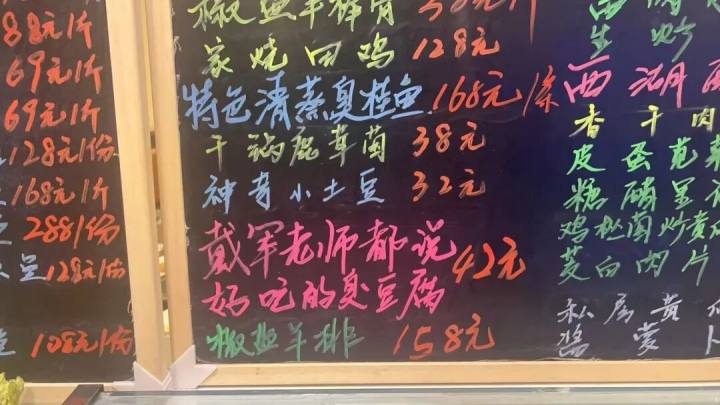 88元1斤
69元1斤
69元1斤
128元1份
168元1斤
2881份
豆128元1份
108元1份
椒盐羊排骨 58元1斤
家烧田鸡 128元
特色清蒸臭桂鱼 168元1条
干锅鹿草菌 38元
神奇小土豆 32元
戴军老师都说 42元
好吃的臭豆腐
椒盐羊排 158元
生炒
西湖
香干肉
皮蛋苋菜
糖
鸡枞菌炒黄
茭白肉片
私房黄
酱萝